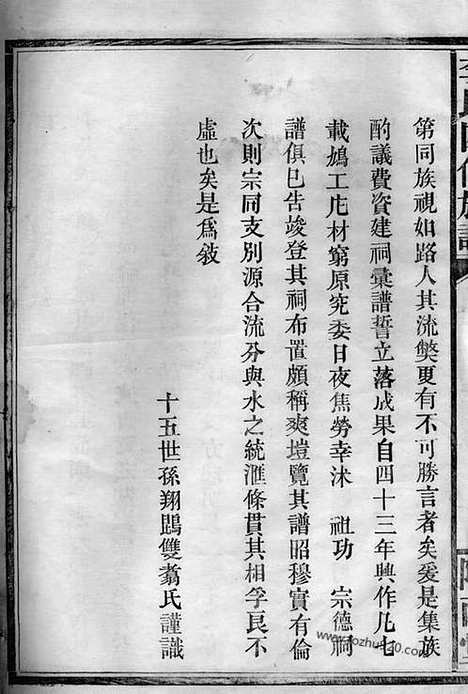 第同族視如路人其流獘更有不可勝言者矣爰是集族
酌議費資建祠彙譜誓立落成果自四十三年興作凡七
載鳩工庀材窮原究委日夜焦勞幸沐　祖功　宗德祠
譜俱已告竣登其祠布置頗稱爽塏覽其譜昭穆實有倫
次則宗同支別源合流分與水之統滙條貫其相孚良不
虛也矣是爲敘
十五世孫翔鵾雙翥氏謹識